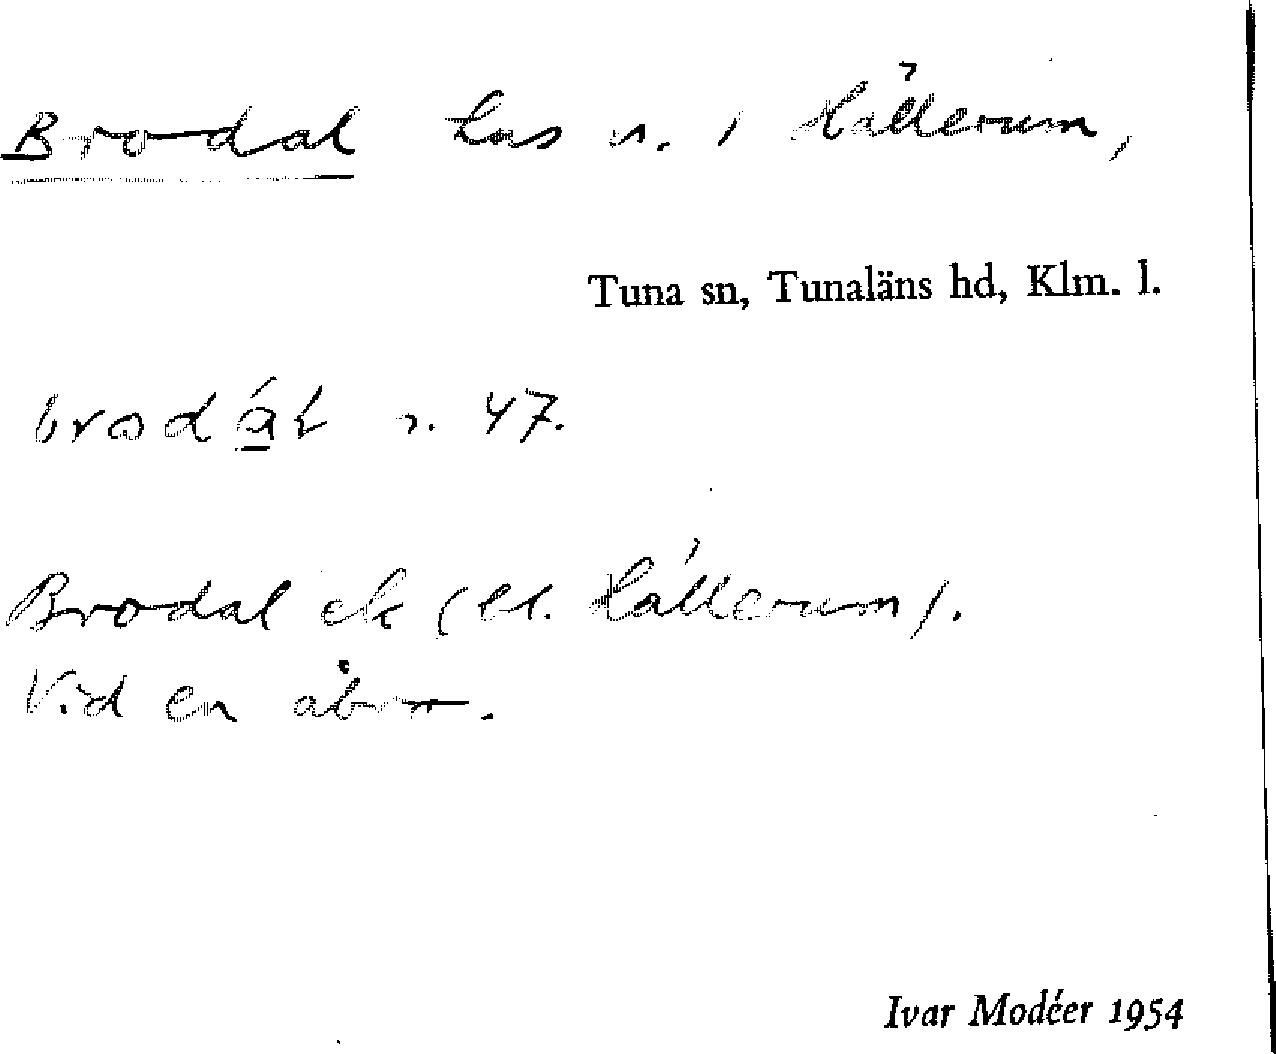 Brodal hus n. i Hållerum,
Tuna sn, Tunaläns hd, Klm. l.
brodá̲l n. 47.
Brodal ek (bl. Hållerum).
Vid en åbro.
Ivar Modéer 1954